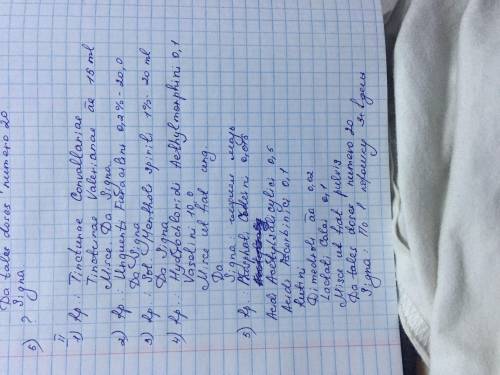 Da tales doses numero 20
Signa
6) ?
II
1) Rp.: Tincturae Convallariae
Tincturae Valerianae āā 15 ml
Misce. Da Signa.
2) Rp.: Unguenti Furacilini 0,2% - 20,0
Da Signa
3) Rp.: Sol. Mentholi spiriti 1% - 20 ml
Da Signa
4) Rp.: Hydrochloridi Aethylmorphini 0,1
Vaselini 10,0
Misce ut fiat ung
Da
Signa мазь
5) Rp.:
Acidi Acetylsalicylici 0,5
Acidi Ascorbinici 0,1
Rutini
Dimedroli āā 0,02
Lactati Calci 0,1
Misce ut fiat pulvis
Da tales doses numero 20
Signa: По 1 порошку 3р в день